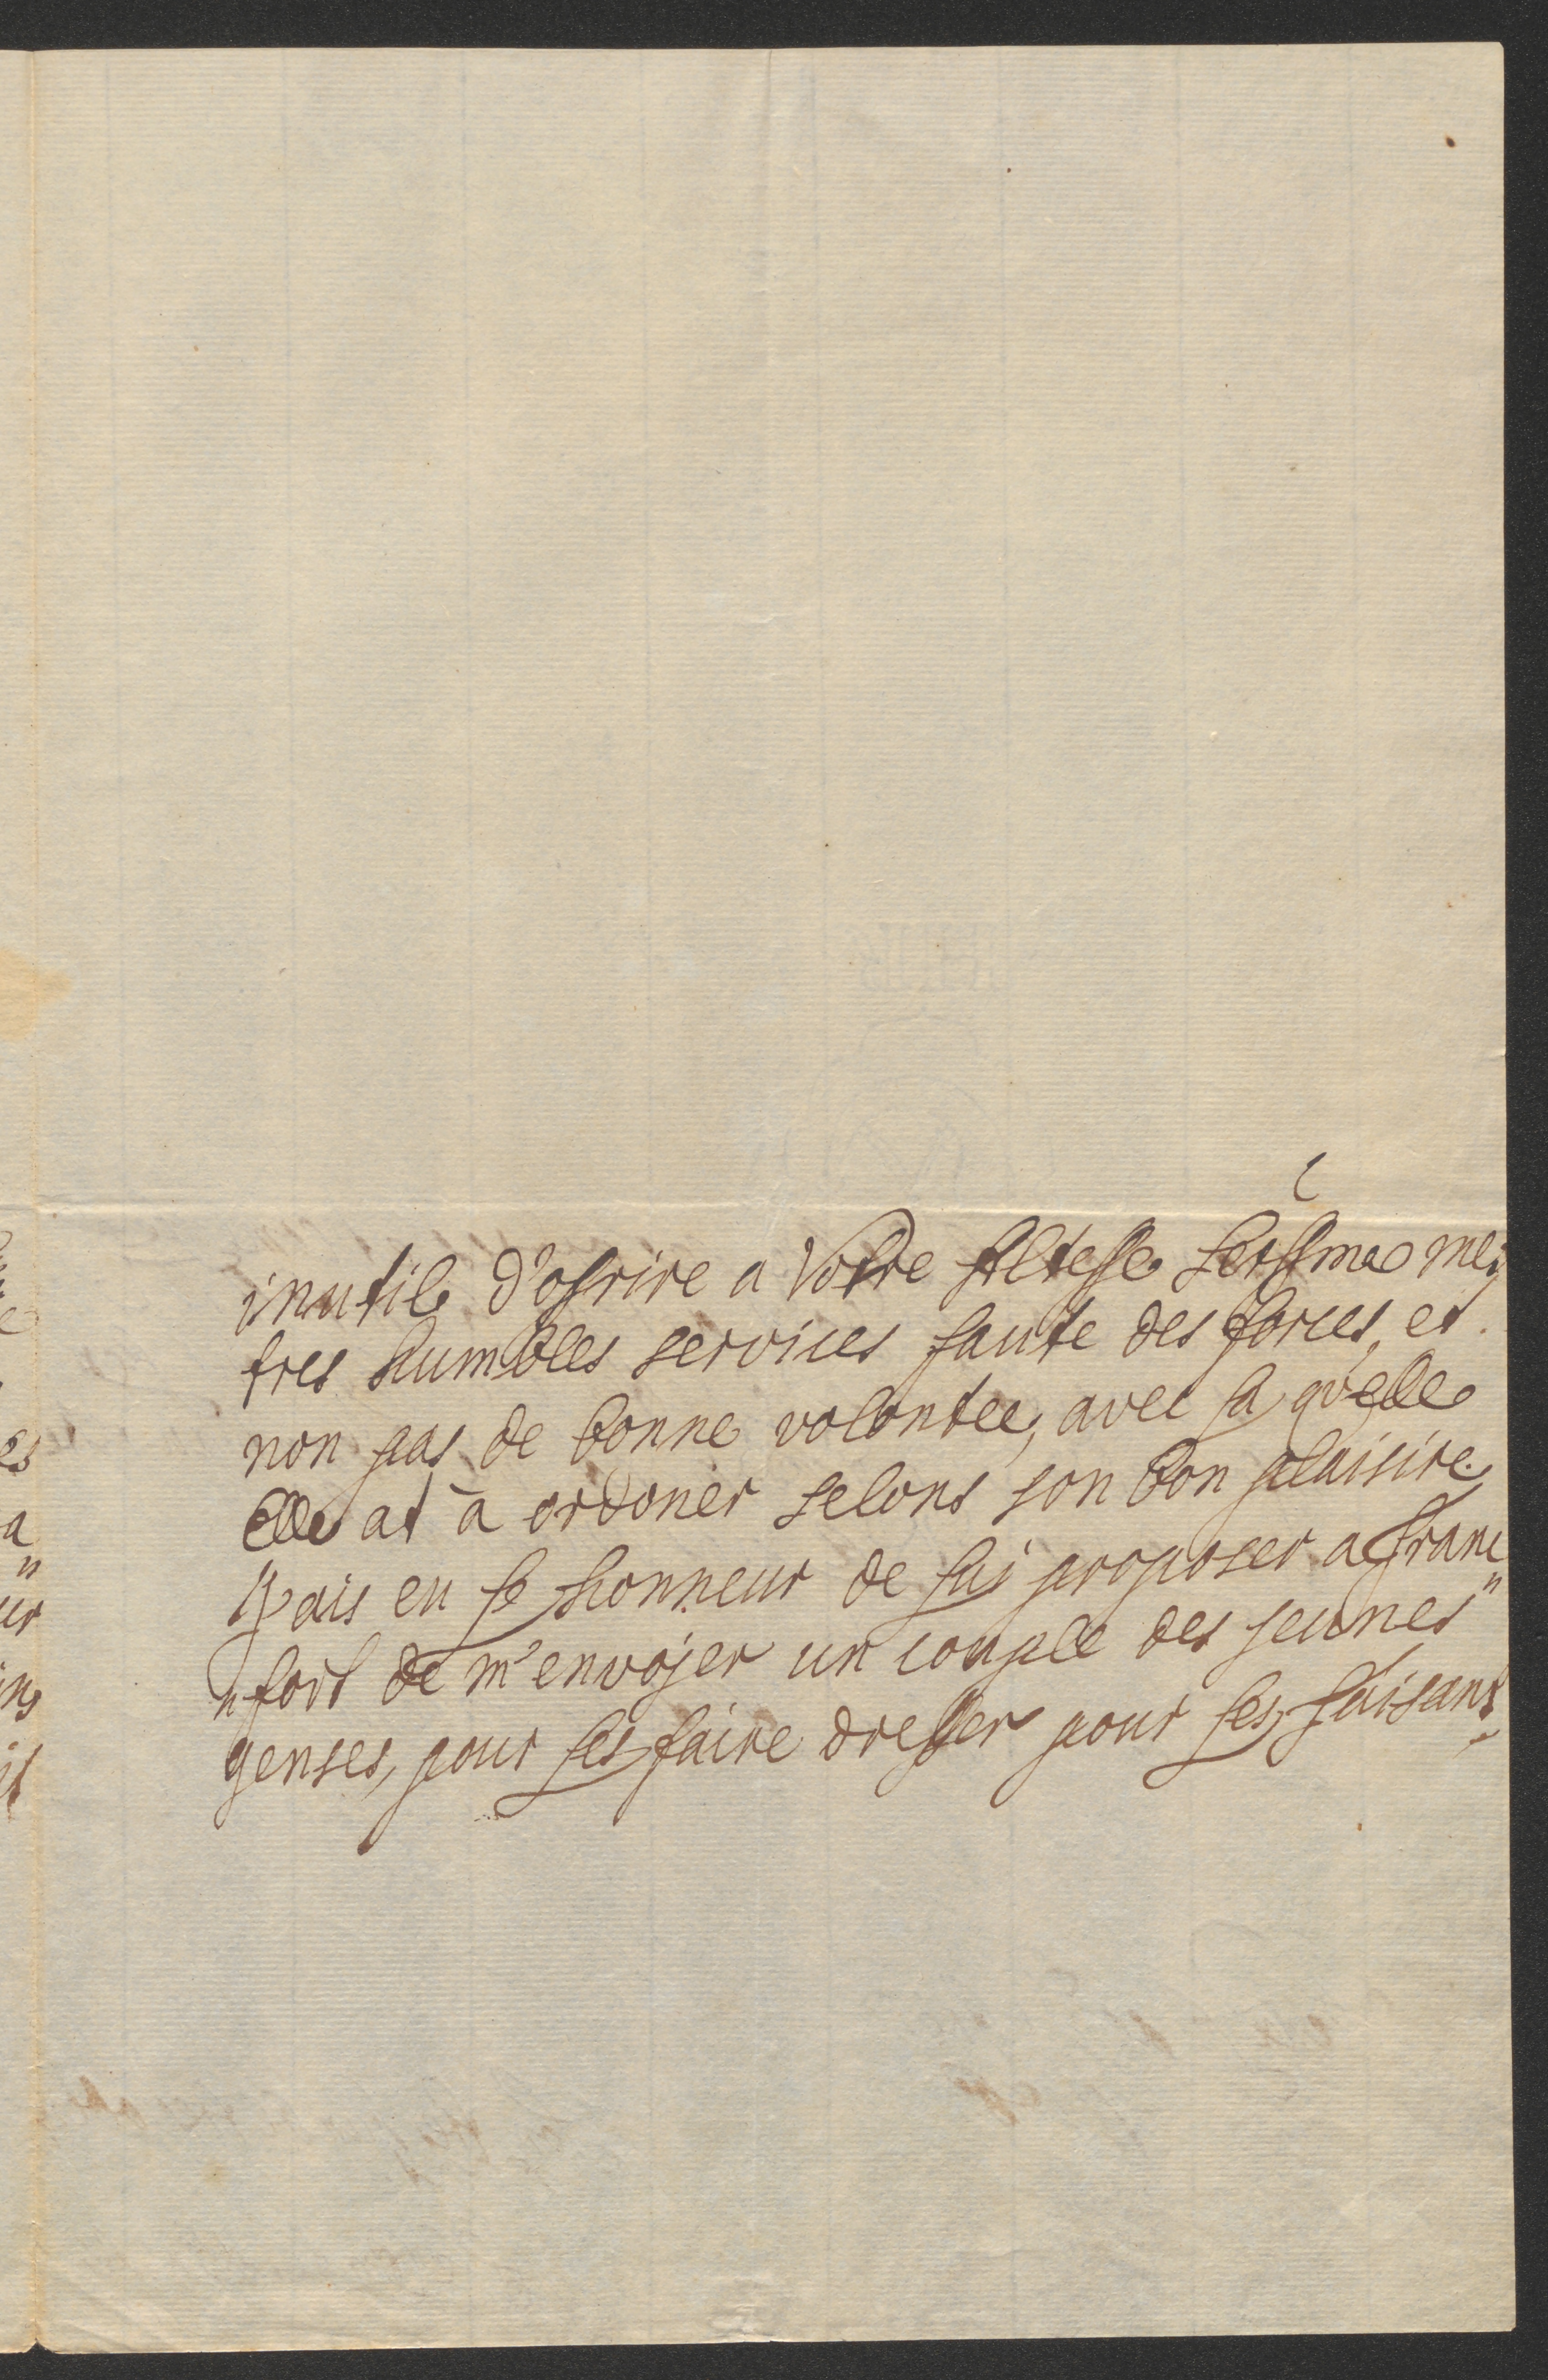 inutile d'ofrire a Votre Altesse Serssme mes
tres humbles services faute des forces, et
non pas de bonne volontee, avec la quelle
Elle at à ordoner selons son bon plaisire.
J'ais eu le honneur de lui proposer a Franc"
"fort de m'envojer un couple des jeunes
genses, pour les faire dresser pour les faisans